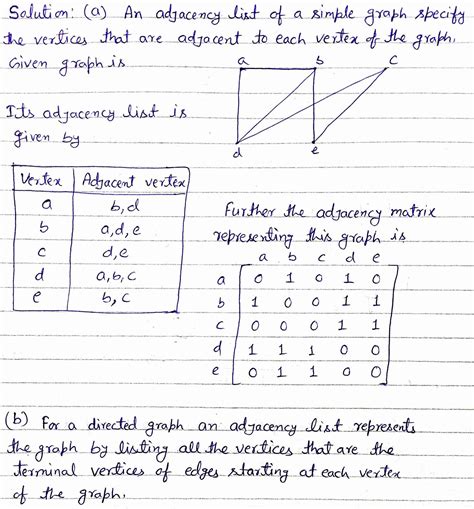 Solution: (a) An adjacency list of a simple graph specify
the vertices that are adjacent to each vertex of the graph.
Given graph is
a b c
d e
Its adjacency list is
given by
Vertex Adjacent vertex
a b,d
b a,d,e
c d,e
d a,b,c
e b,c
Further the adjacency matrix
representing this graph is
a b c d e
a 0 1 0 1 0
b 1 0 0 1 1
c 0 0 0 1 1
d 1 1 1 0 0
e 0 1 1 0 0
(b) For a directed graph an adjacency list represents
the graph by listing all the vertices that are the
terminal vertices of edges starting at each vertex
of the graph.